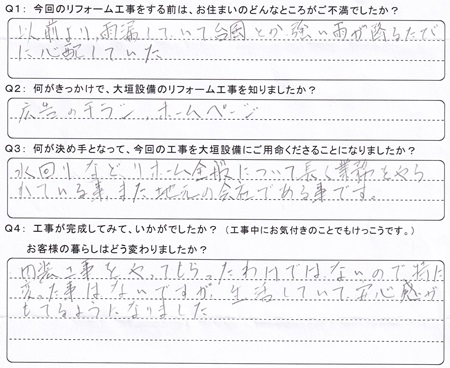 Q1: 今回のリフォーム工事をする前は、お住まいのどんなところがご不満でしたか?
以前より雨漏していて台風とか強い雨が降るたび
に心配していた
Q2: 何がきっかけで、大垣設備のリフォーム工事を知りましたか?
広告のチラシ ホームページ
Q3: 何が決め手となって、今回の工事を大垣設備にご用命くださることになりましたか?
水回りなど、リホーム全般について長く業務をやら
れている事、また地元の会社である事です。
Q4: 工事が完成してみて、いかがでしたか? (工事中にお気付きのことでもけっこうです。)
お客様の暮らしはどう変わりましたか?
内装工事をやってもらったわけではないので特に
変った事はないですが、生活していて安心感が
もてるようになりました